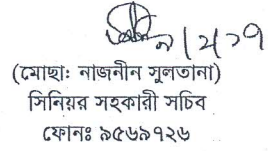 (মোছাঃ নাজনীন সুলতানা)
সিনিয়র সহকারী সচিব
ফোনঃ ৯৫৬৯৭২৬